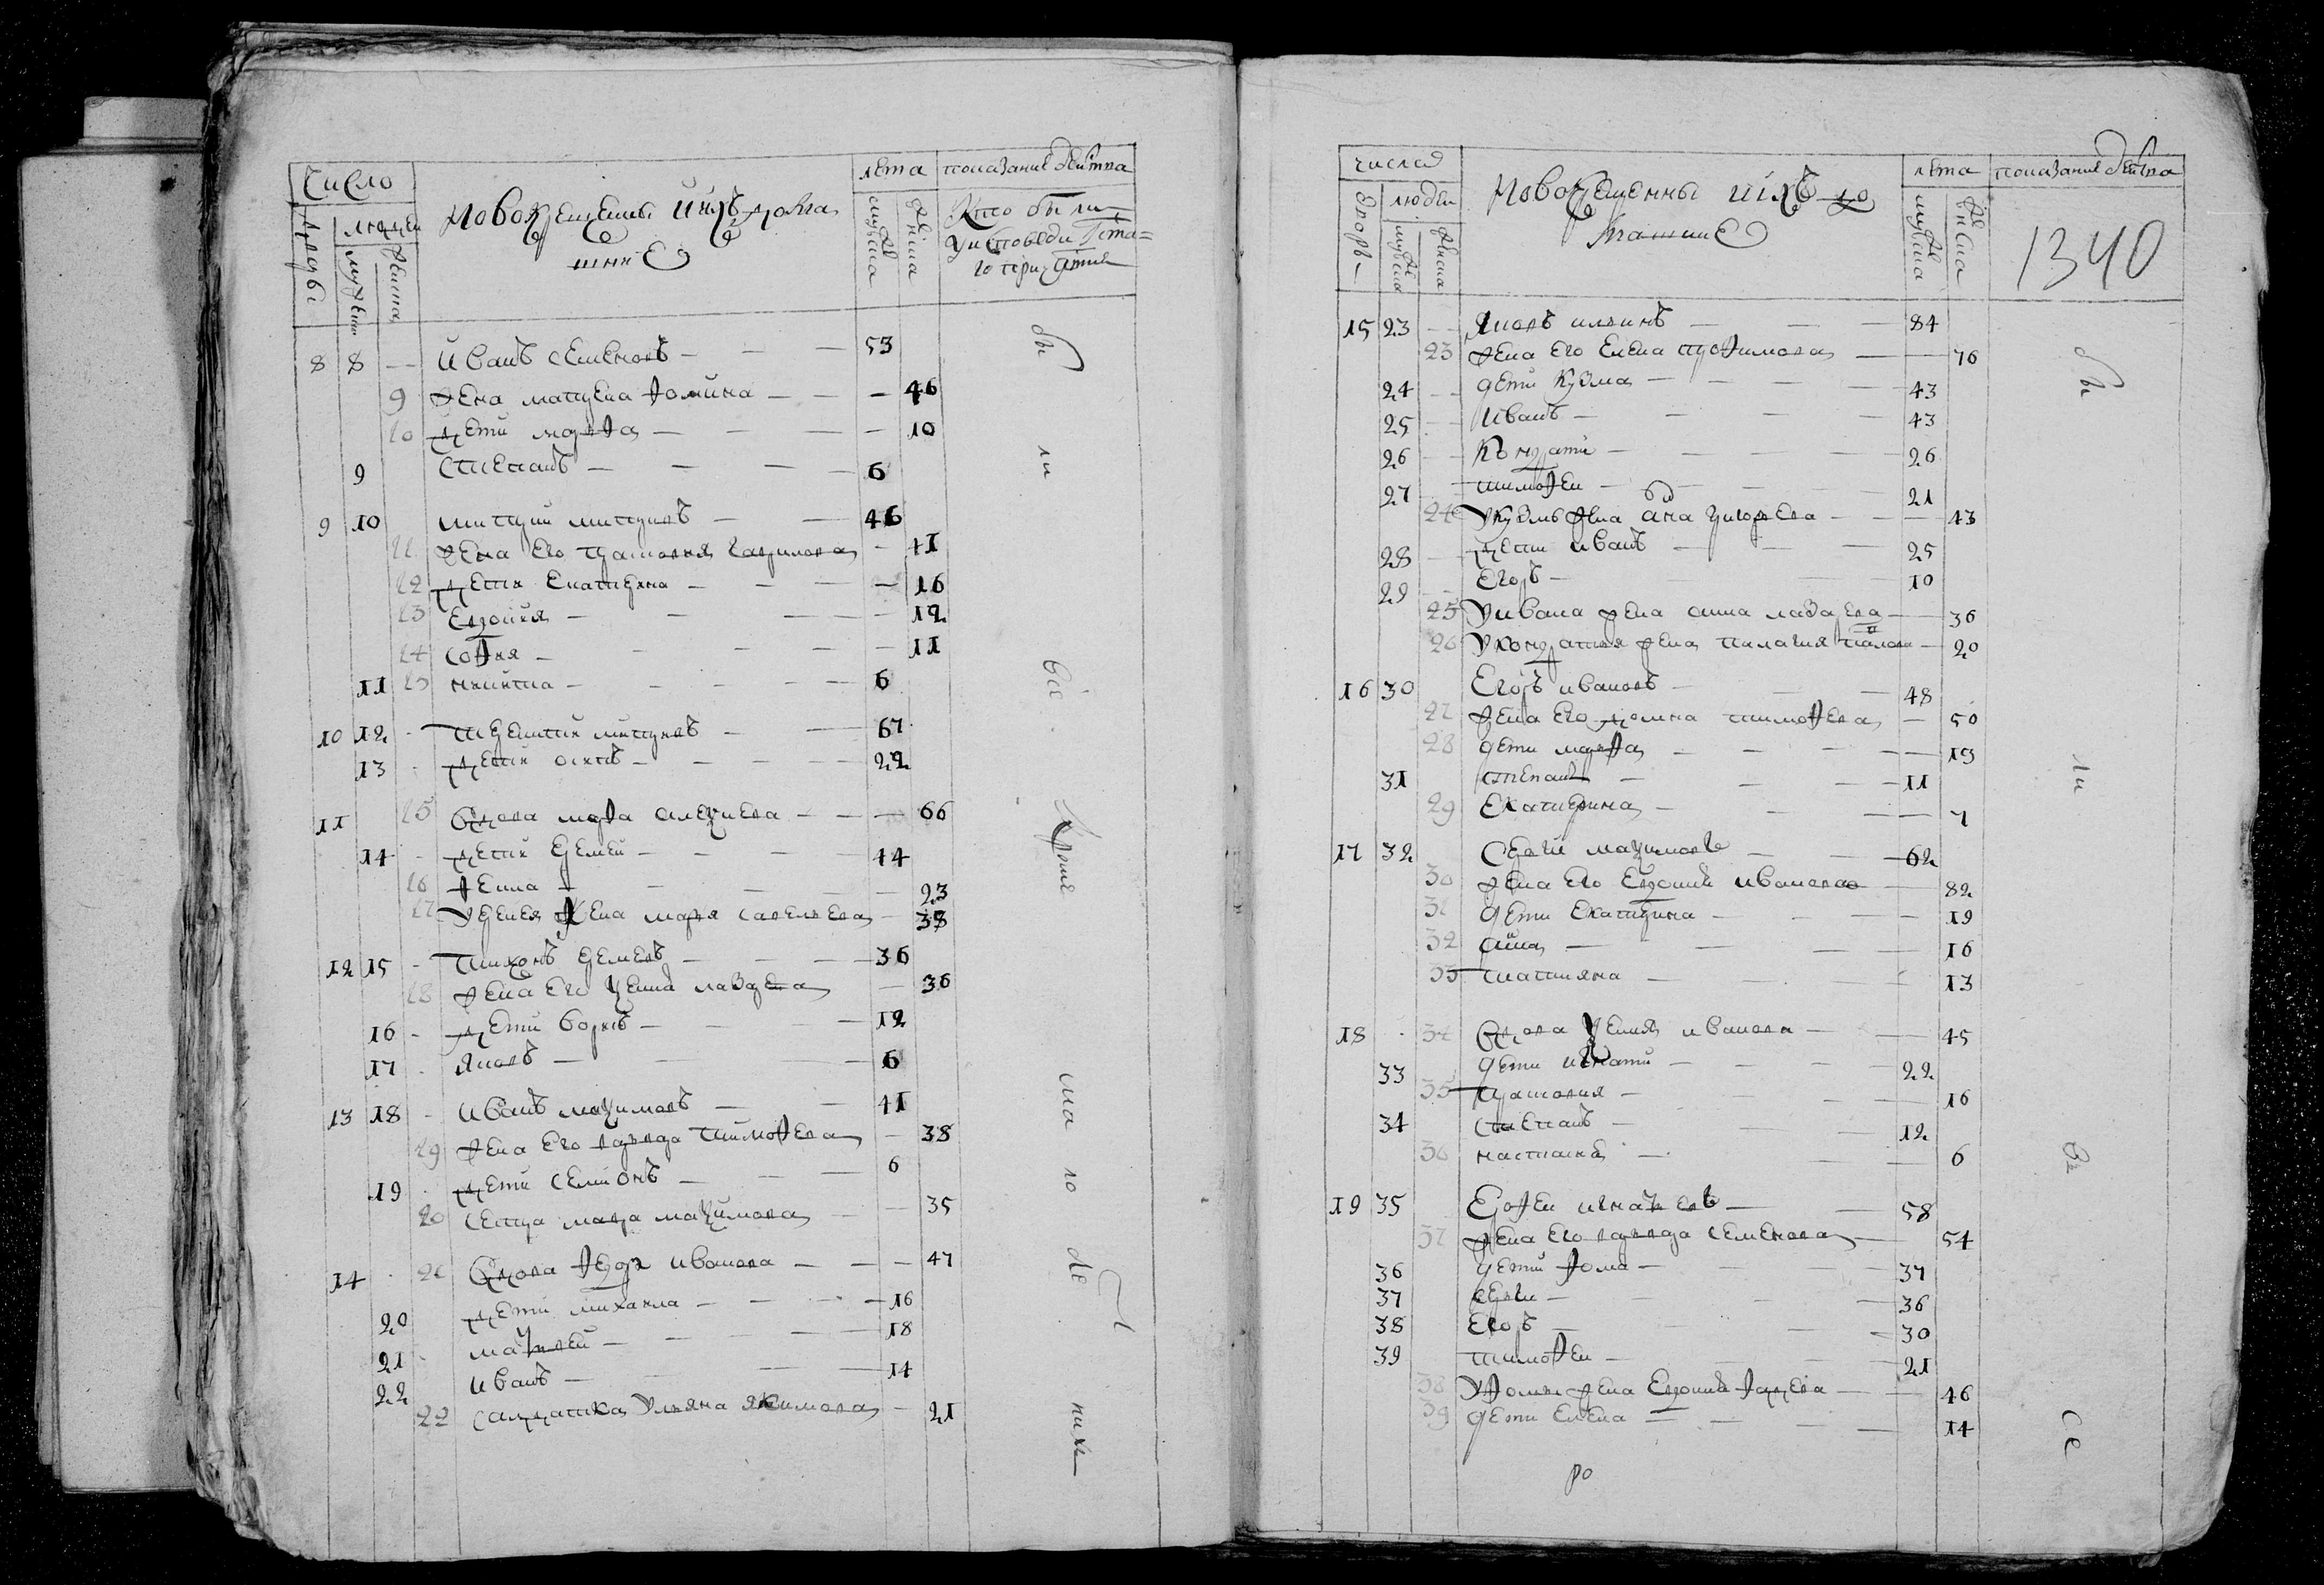 число
дворы
людей
мужеска
женска
Новокрещены и ихъ домашние
лета
мужеска
женска
показание действа
Кто были
у исповеди Свята=
го причастия
8 8 — Иванъ Семеновъ — 53
9 жена матрена Фомина — 46
10 дети марфа — 10
9 Степанъ — 6
9 10 митрий митриевъ — 46
11 жена его прасковия Гаврилова — 41
12 дети Екатерина — 16
13 Евдокия — 12
14 София — 11
11 никита — 6
10 12 — терентий митриевъ — 67
13 дети осипъ — 22
11 15 вдова марфа алексиева — 66
14 — дети еремей — 44
16 Фекла — 23
17 У еремея жена маря савелиева — 38
12 15 — Тихонъ еремеевъ — 36
18 жена его ксения лазарева — 36
16 — дети борисъ — 12
17 яковъ — 6
13 18 — Иванъ максимовъ — 41
19 жена его варвара тимофеева — 38
19 дети Семионъ — 6
20 Сестра мавра максимова — 35
14 21 вдова Федора Иванова — 47
20 дети михаила — 16
21 матвей — 18
22 Иванъ — 14
22 Салдатка Ульяна якимова — 21
бы ли
все кроме ма ло де т нихъ
числа
дворы
людей
мужеска
женска
Новокрещенны и ихъ домашние
лета
мужеска
женска
показание действа
1340
15 23 — Яковъ ильинъ — 84
23 жена его Елена трофимова — 76
24 — дети Кузма — 43
25 — Иванъ — 43
26 — Кондратий — 26
27 — тимофей — 21
24 У кузмы жена анна григорева — 43
28 — дети Иванъ — 25
29 — Егоръ — 10
25 У ивана жена анна лазарева — 36
26 У кондратия жена палагия — 20
16 30 Егоръ ивановъ — 48
27 жена его домна тимофева — 50
28 дети марфа — 19
31 степанъ — 11
29 Екатерина — 7
17 32 Сергий максимовъ — 62
30 жена его Евдокия иванова — 82
31 дети Екатерина — 19
32 анна — 16
33 татияна — 13
18 34 вдова ксения иванова — 45
33 дети игнатий — 22
35 прасковия — 16
34 Степанъ — 12
36 настасия — 6
19 35 Ерофей игнатьевъ — 58
37 жена его варвара семенова — 54
36 дети Фома — 37
37 сергий — 36
38 Егоръ — 30
39 тимофей — 21
38 У Фомы жена Евдокия — 46
39 дети Елена — 14
бы ли все
ро